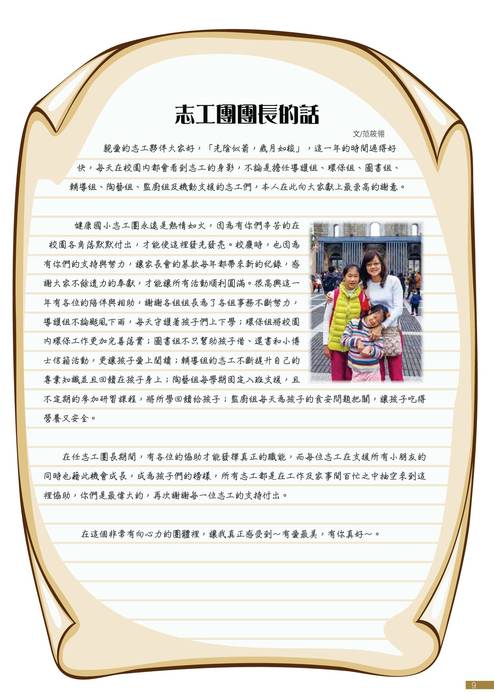 志工團團長的話
文/范筱翎
親愛的志工夥伴大家好，「光陰似箭，歲月如梭」，這一年的時間過得好
快，每天在校園內都會看到志工的身影，不論是擔任導護組、環保組、圖書組、
輔導組、陶藝組、監廚組及機動支援的志工們，本人在此向大家獻上最崇高的謝意。
健康國小志工團永遠是熱情如火，因為有你們辛苦的在
校園各角落默默付出，才能使這裡發光發亮。校慶時，也因為
有你們的支持與努力，讓家長會的募款每年都帶來新的紀錄，感
謝大家不餘遺力的奉獻，才能讓所有活動順利圓滿。很高興這一
年有各位的陪伴與相助，謝謝各組組長為了各組事務不斷努力，
導護組不論颳風下雨，每天守護著孩子們上下學；環保組將校園
內環保工作更加完善落實；圖書組不只幫助孩子借、還書和小博
士信箱活動，更讓孩子愛上閱讀；輔導組的志工不斷提升自己的
專業知識並且回饋在孩子身上；陶藝組每學期固定入班支援，且
不定期的參加研習課程，將所學回饋給孩子；監廚組每天為孩子的食安問題把關，讓孩子吃得
營養又安全。
在任志工團長期間，有各位的協助才能發揮真正的職能，而每位志工在支援所有小朋友的
同時也藉此機會成長，成為孩子們的榜樣，所有志工都是在工作及家事間百忙之中抽空來到這
裡協助，你們是最偉大的，再次謝謝每一位志工的支持付出。
在這個非常有向心力的團體裡，讓我真正感受到～有童最美，有你真好～。
9